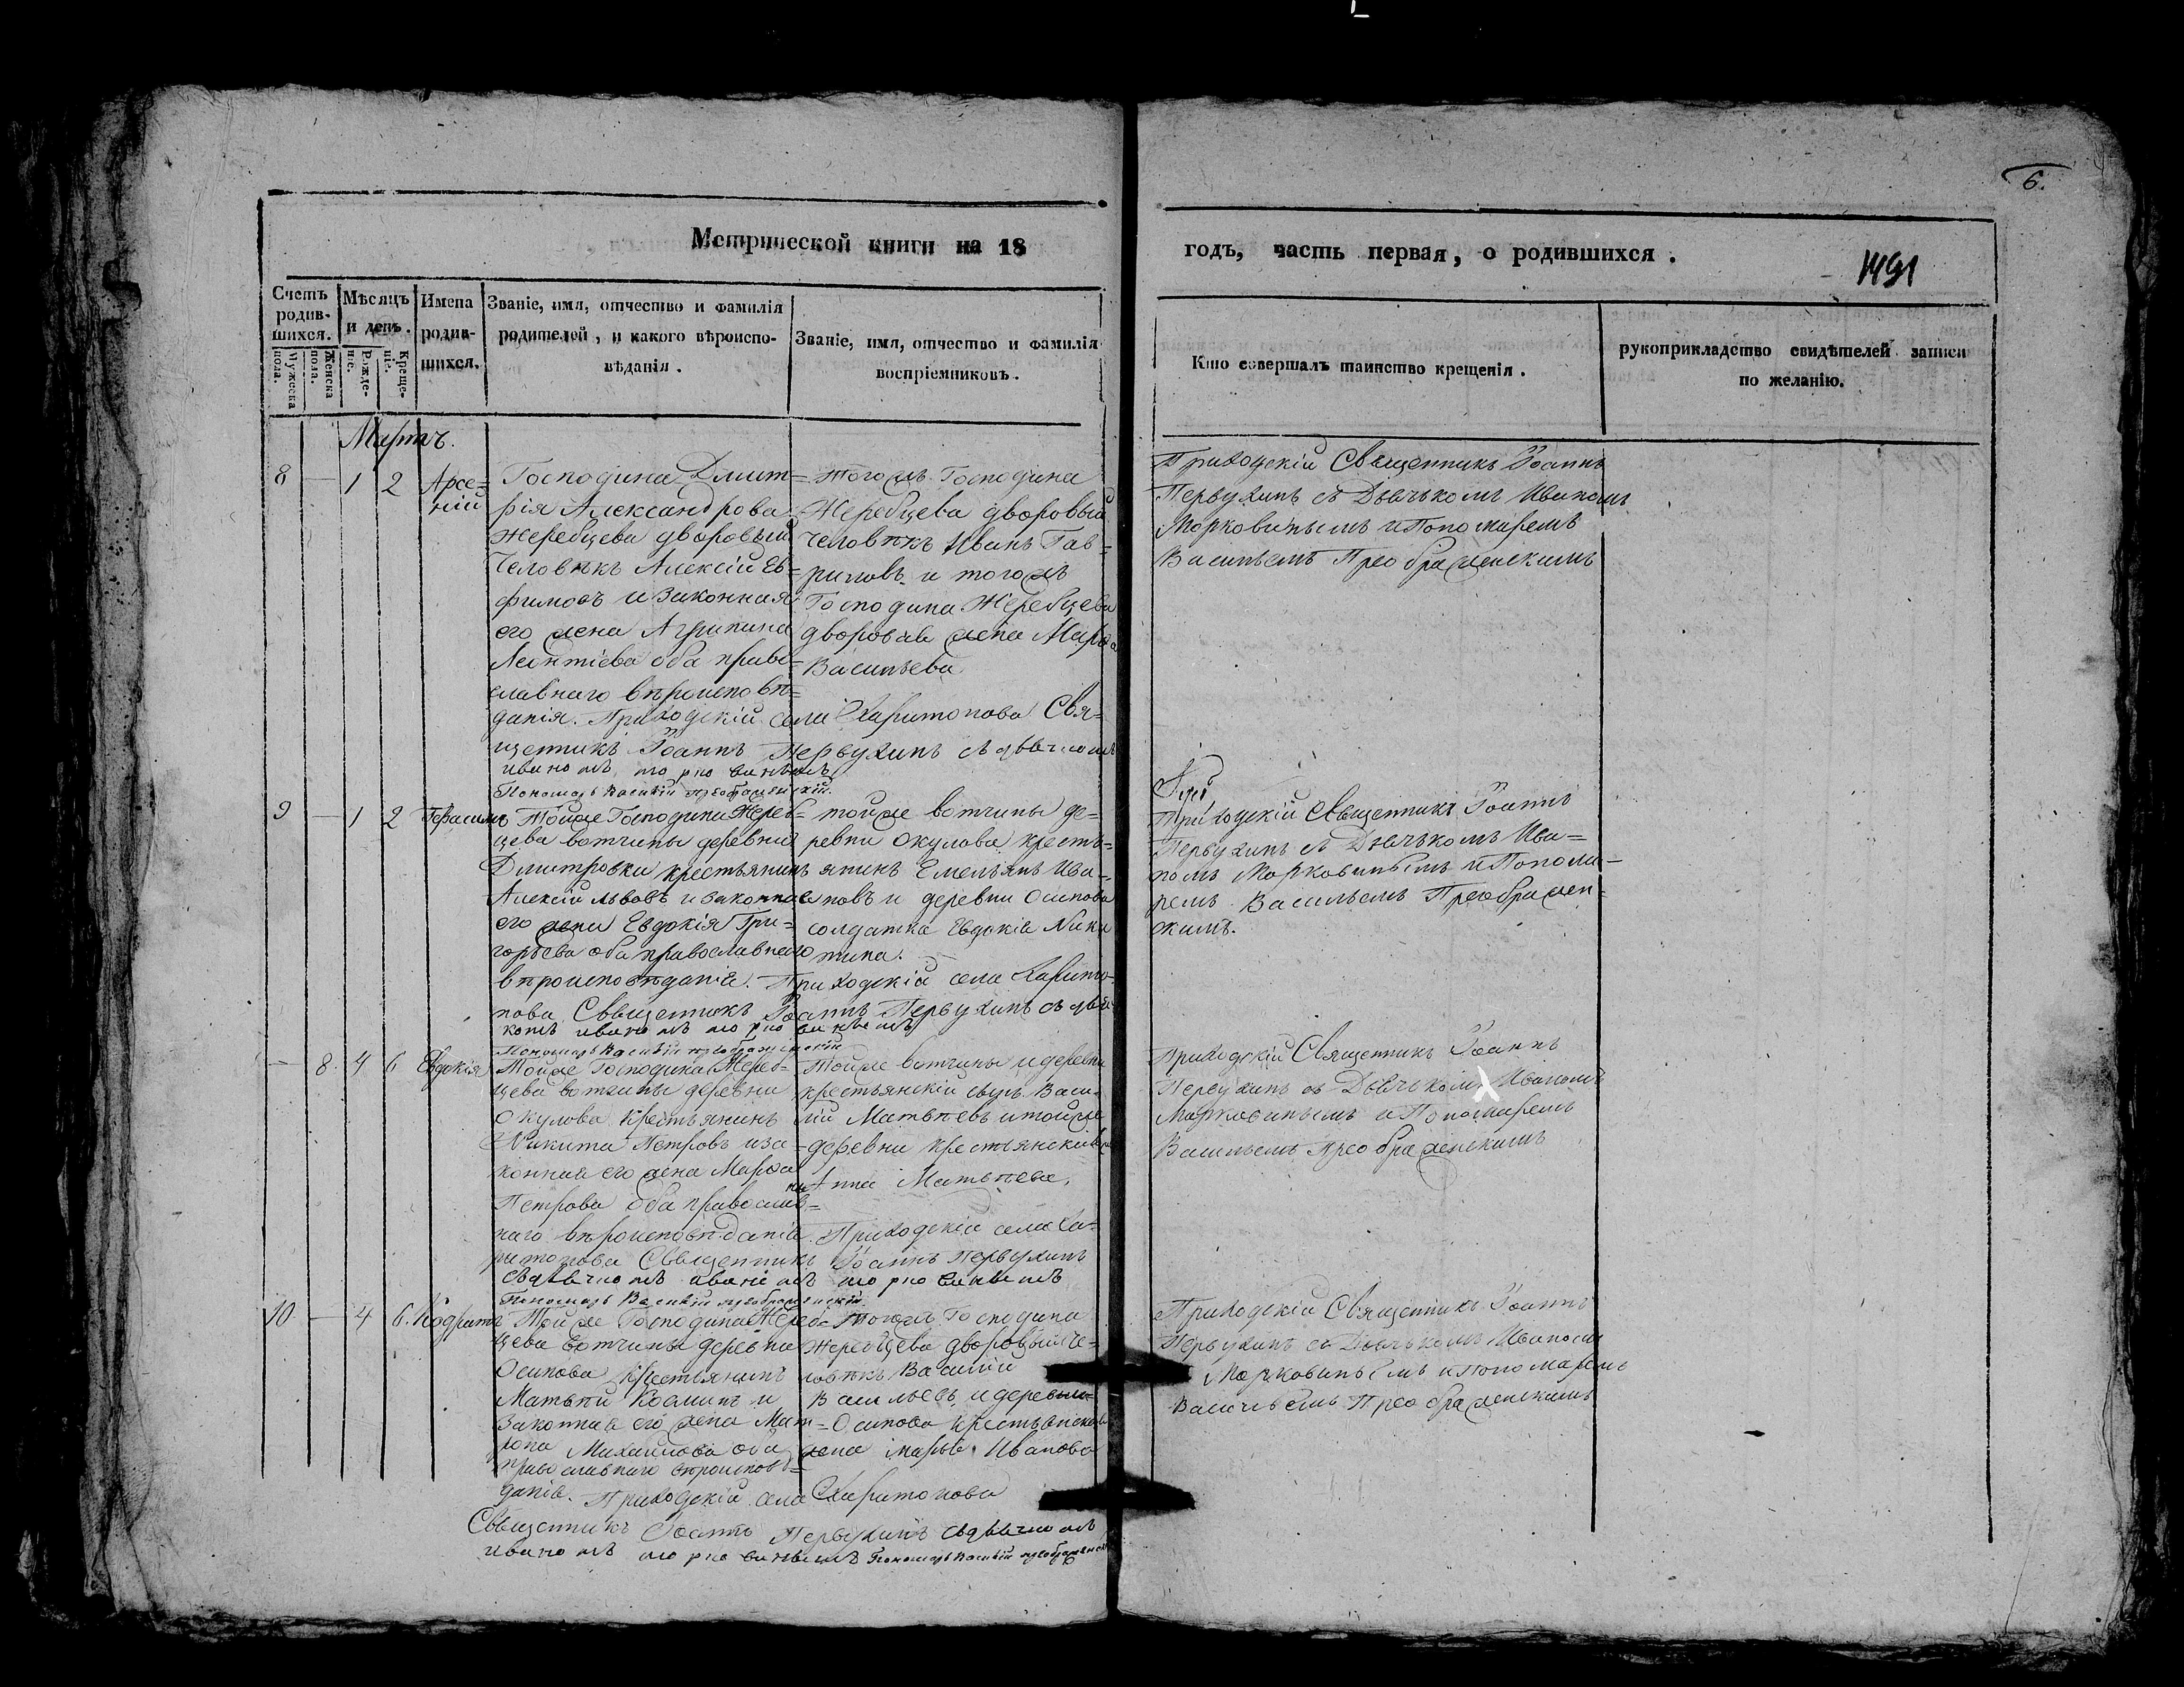 6.
Метрической книги на 18
годъ, часть первая, о родившихся.
1491
Счетъ родив-шихся.
Мужеска пола.
Женска пола.
Мѣсяцъ и день.
Рожде-ніе.
Креще-ніе.
Имена родив-шихся.
Званіе, имя, отчество и фамилія
родителей, и какого вѣроиспо-
вѣданія.
Званіе, имя, отчество и фамилія
воспріемниковъ.
Кто совершалъ таинство крещенія.
рукоприкладство свидѣтелей записи
по желанію.
Мартъ.
8 — 1 2 Арсе=
ній
Господина Дмит=
рія Александрова
Жеребцева дворовый
Человѣкъ Алексій Ев=
фимовъ и законная
его жена Агрипина
Леонтіева оба право=
славнаго вѣроисповѣ=
данія. Приходскій села Харитонова Свя=
щенникъ Іоаннъ Первухинъ съ дьячкомъ
иваномъ морковинымъ
Пономарь Василій преображенскій.
тогожъ Господина
Жеребцева дворовый
человѣкъ Иванъ Гав=
риловъ и тогожъ
Господина Жеребцева
дворовая жена Марѳа
Васильева
Приходскій Священникъ Іоаннъ
Первухинъ съ Дьячькомъ Иваномъ
Морковинымъ и Пономаремъ
Васильемъ Преображенскимъ
9 — 1 2 Герасимъ
Тойже Господина Жереб=
цева вотчины деревни
Дмитровки крестьянинъ
Алексій львовъ и законная
его жена Евдокія Гри=
горьева оба православнаго
вѣроисповѣданія. Приходскій села Харито=
нова Священникъ Іоаннъ Первухинъ съ дья
комъ иваномъ морковинымъ
Пономарь Василій преображенскій
тойже вотчины де=
ревни Окулова кресть=
янинъ Емельянъ Ива=
новъ и деревни Осипова
солдатка Евдокія Ники
тина.
Приходскій Священникъ Іоаннъ
Первухинъ съ Дьячькомъ Ива=
номъ Морковинымъ и Понома=
ремъ Васильемъ Преображен=
скимъ.
— 8 4 6 Евдокія
Тойже Господина Жереб=
цева вотчины деревни
Окулова крестьянинъ
Никита Петровъ и за=
конная его жена Марѳа
Петрова оба православ=
наго вѣроисповѣданія. Приходскій села Ха=
ритонова Священникъ Іоаннъ Первухинъ
съ дьячкомъ иваномъ морковинымъ
Пономарь Василій преображенскій
Тойже вотчины и деревни
крестьянскій сынъ Васи=
лій Матвѣевъ и тойже
деревни крестьянская
Анна Матвѣева.
Приходскій Священникъ Іоаннъ
Первухинъ съ Дьячькомъ Иваномъ
Морковинымъ и Пономаремъ
Васильемъ Преображенскимъ
10 — 4 6. Кодратъ
Тойже Господина Жереб=
цева вотчины деревни
Осипова крестьянинъ
Матвѣй Козминъ и
Законная его жена Мат=
рона Михаилова оба
православнаго вѣроисповѣ=
данія. Приходскій села Харитонова
Священникъ Іоаннъ Первухинъ съ дьячкомъ
иваномъ морковинымъ Пономарь Василій преображенскій
Тогожъ Господина
Жеребцева дворовый че=
ловѣкъ Василій
Васильевъ и деревни
Осипова крестьянская
жена Марья Иванова
Приходскій Священникъ Іоаннъ
Первухинъ съ Дьячькомъ Иваномъ
Морковинымъ и Пономаремъ
Васильемъ Преображенскимъ